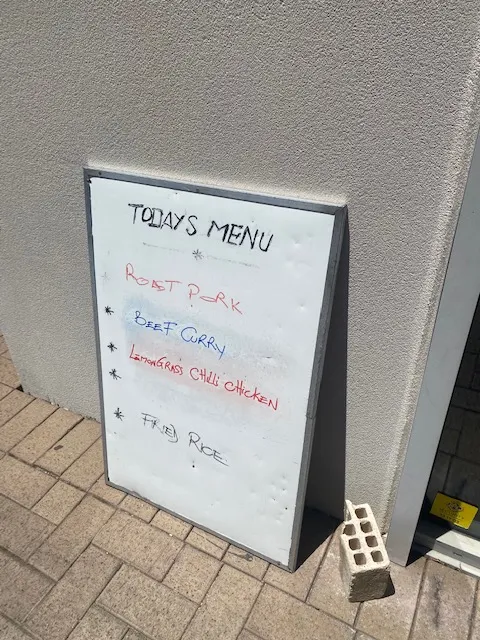 TODAYS MENU
*
ROAST PORK
* BEEF CURRY
* LEMONGRASS CHILLI CHICKEN
*
* FRIED RICE